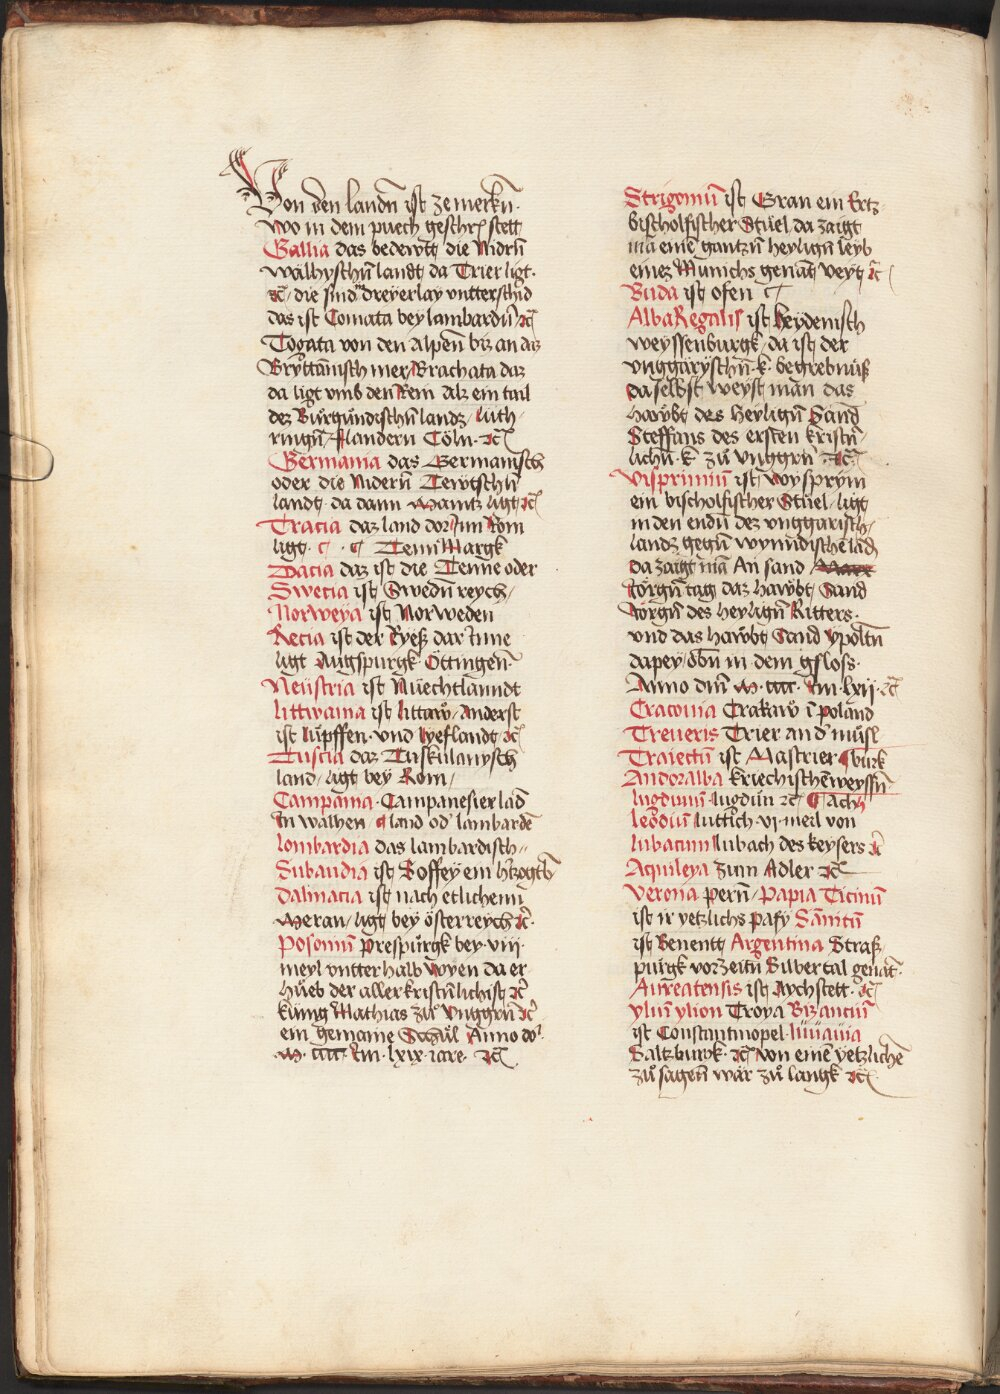 Von den̄ landn̄ ist ze merkn̄·
wo in dem puech geschrꝭ stett
Gallia das bedewtt die Nidrn̄
wälhyschn̄ landt da Trier ligt·
ꝛc̄ / die sind dreyerlay vntterschid
das ist Comata bey lambardn̄ ꝛc̄
Togata von den Alpen̄ biz an daz
Bryttanisch mer / Brachata daz
da ligt vmb den Rein Alz ein tail
dez Burgundeschn̄ landz / luth-
ringn̄ / flandern Cöln· ꝛc̄
Germania das Germanisch
oder die Nidern̄ Tewtschn̄
landt· da dann Maintz ligt ꝛc̄
Tracia daz land dor Inn Rom
ligt· Tenn Margk
Dacia daz ist die Tenne oder
Swetia ist Sweden̄ reych /
Norweya ist Norweden
Recia ist der Ryeß dar Inne
ligt Augspurgk Öttingen·
Neustria ist Nuechtlanndt
littwania ist littaw / Anderst
ist lupffen· vnd lyeflandt· ꝛc̄
Tuscia daz Tuskulanysch
land / ligt bey Rom /
Campania· Campanesier lād
In walhen land od' lambardē
lombardia das lambardisch /
Subaudia ist Soffey ein h'tzogtū
dalmacia ist nach etlichenn
Meran / ligt bey österreych ꝛc̄·
Posonium prespurgk bey· viij·
meyl vntterhalb wyen da er-
hueb der aller kristnlichist ꝛc̄
kunig Mathias zu vnggrn̄ ꝛc̄
ein gemaine Schul Anno do'
M· cccc· Im· lxix· iare· ꝛc̄
Strigoniū ist Gran ein Ertz-
bischolfischer Stuel da zaigt
mā eine gantzn̄ heylign̄ leyb
einez Munichs genāt veyt ꝛc̄
Buda ist ofen
Alba Regalis ist heydenisch
weyssenburgk / da ist der
vnggaryschn̄· k· begrebnuß
da selbst weyst man das
hawbt des heylign̄ Sand
Steffans des ersten kristn̄-
lichn̄· k· zu vnggrn̄ ꝛc̄
Visprimiū ist woysprym
ein bischolfischer Stuel / ligt
in den endn̄ dez vnggarisch
landz gegn̄ wynndischē lād
da zaigt mā An sand
Jörgn̄ tag daz hawbt Sand
Jörgn̄ des heylign̄ Ritters·
vnd das hawbt Sand ypoltn̄
dapey / obn̄ in dem gsloss·
Anno dm̄ M· cccc· Im· lxij· ꝛc̄
Craconia Crakaw ī poland
Treueris Trier and' musl
Traiectū ist Mastrier burk
Andoralba kriechischēweyssn̄
lugdunū lugdun ꝛc̄ Ach
leodiū luttich· vi· meil von
lubacum lubach des keysers ꝛc̄
Aquileya zum Adler ꝛc̄
Verona pern̄ / Papia Ticinū
ist ir yetzlichs pafy Samtū
ist Benentt Argentina Straß-
purgk vorzeitn̄ Silbertal genāt·
Aureatensis ist Aychstett· ꝛc̄
yliū ylion Troya Bizanciū
ist Constantinopel· Iuuauia
Saltzburk· ꝛc̄ von einē yetzlichē
zu sagen̄ wär zu langk ꝛc̄